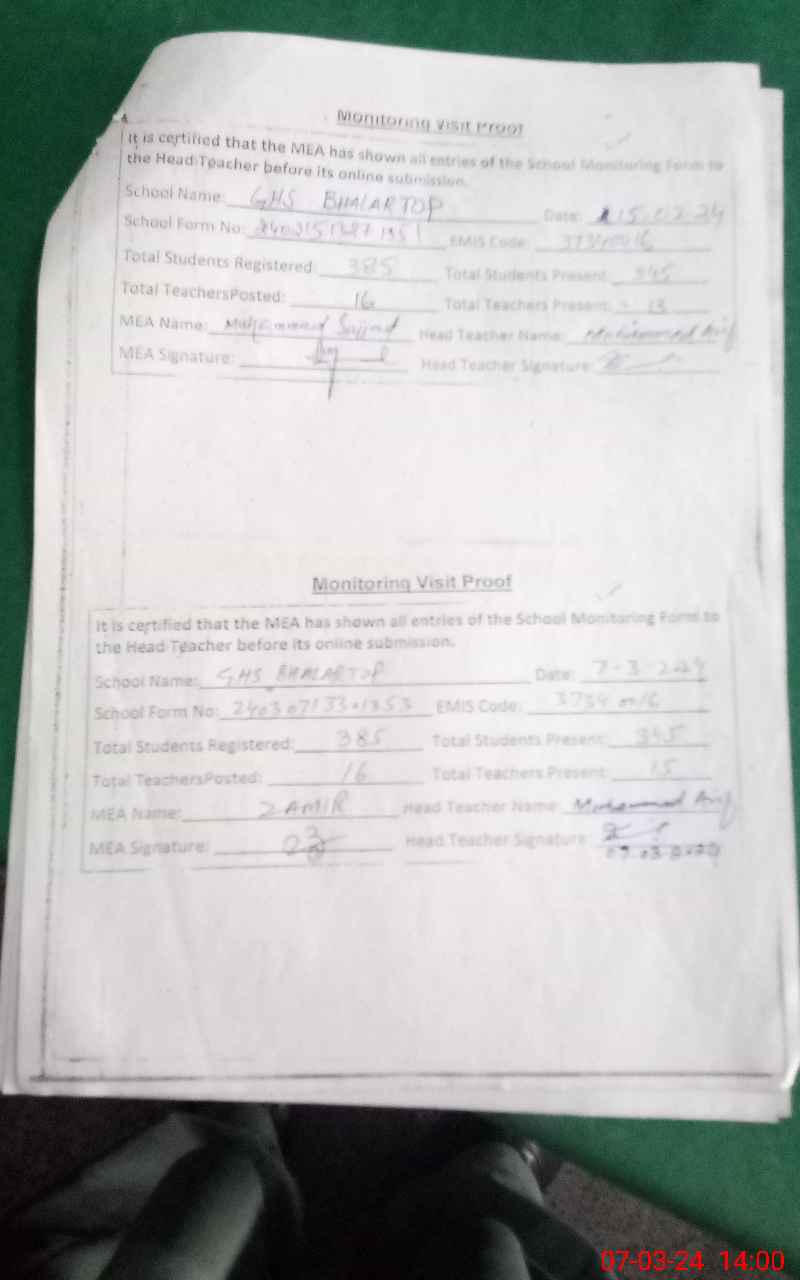 Monitoring Visit Proof
It is certified that the MEA has shown all entries of the School Monitoring Form to
the Head Teacher before its online submission.
School Name: GHS BHALARTOP Date: 15.02.24
School Form No: EMIS Code:
Total Students Registered: 385 Total Students Present: 345
Total TeachersPosted: 16 Total Teachers Present: 13
MEA Name: Muhammad Sajjad Head Teacher Name: Muhammad Arif
MEA Signature: Head Teacher Signature:
Monitoring Visit Proof
It is certified that the MEA has shown all entries of the School Monitoring Form to
the Head Teacher before its online submission.
School Name: GHS BHALARTOP Date: 7-3-2024
School Form No: EMIS Code:
Total Students Registered: 385 Total Students Present: 345
Total TeachersPosted: 16 Total Teachers Present: 15
MEA Name: ZAMIR Head Teacher Name: Muhammad Arif
MEA Signature: Head Teacher Signature:
07.03.2024
07-03-24 14:00